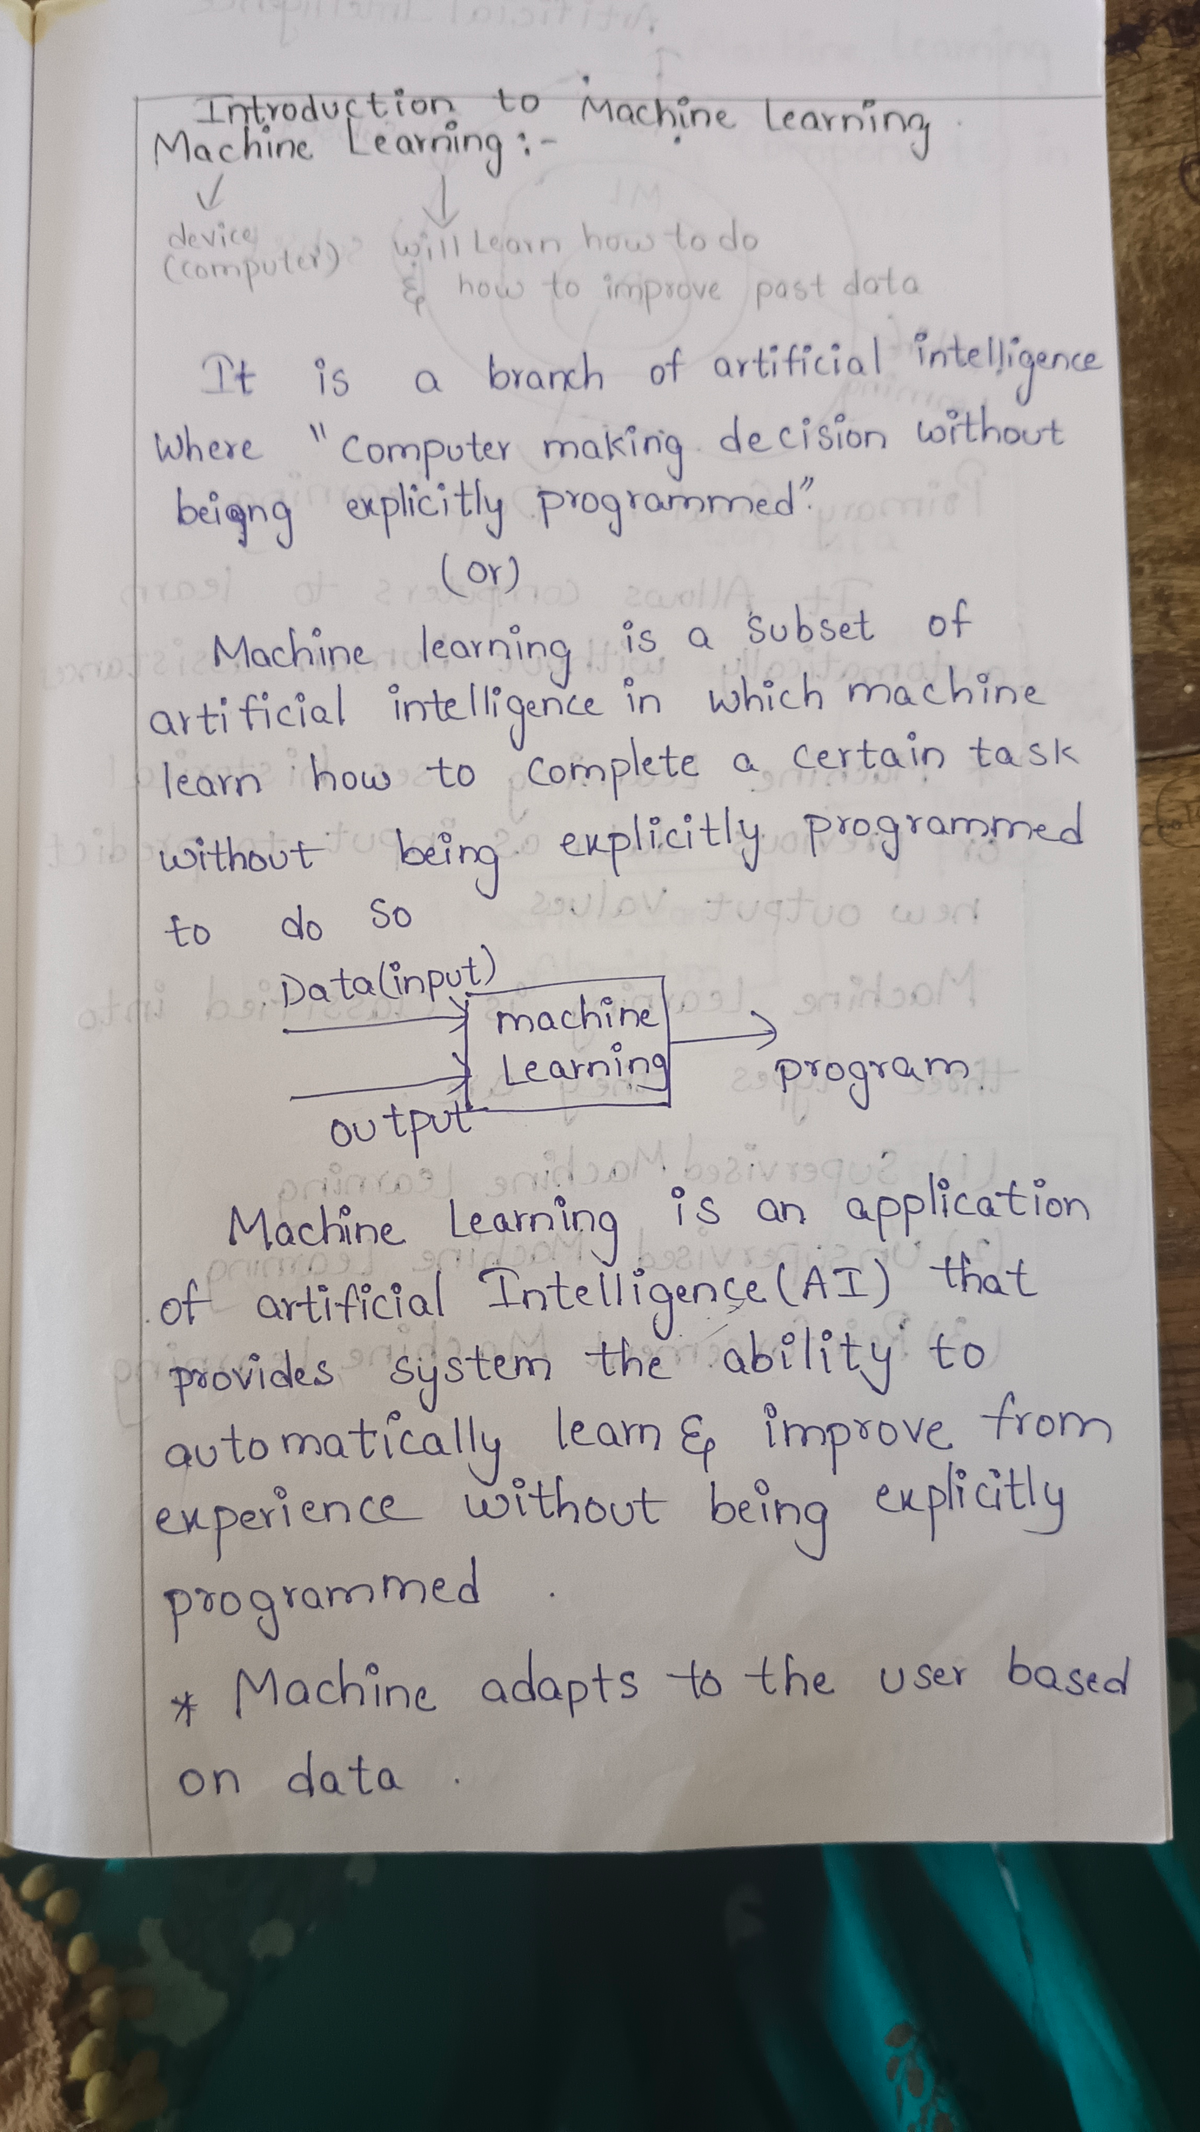 Introduction to Machine Learning
Machine Learning :-
device will Learn how to do
(computer) & how to improve past data
It is a branch of artificial intelligence
Where "computer making decision without
beigng explicitly programmed".
(or)
Machine learning is a subset of
artificial intelligence in which machine
learn how to complete a certain task
without being explicitly programmed
to do so
Data(input)
machine
Learning
program.
output
Machine Learning is an application
of artificial Intelligence (AI) that
provides system the ability to
automatically learn & improve from
experience without being explicitly
programmed .
* Machine adapts to the user based
on data .